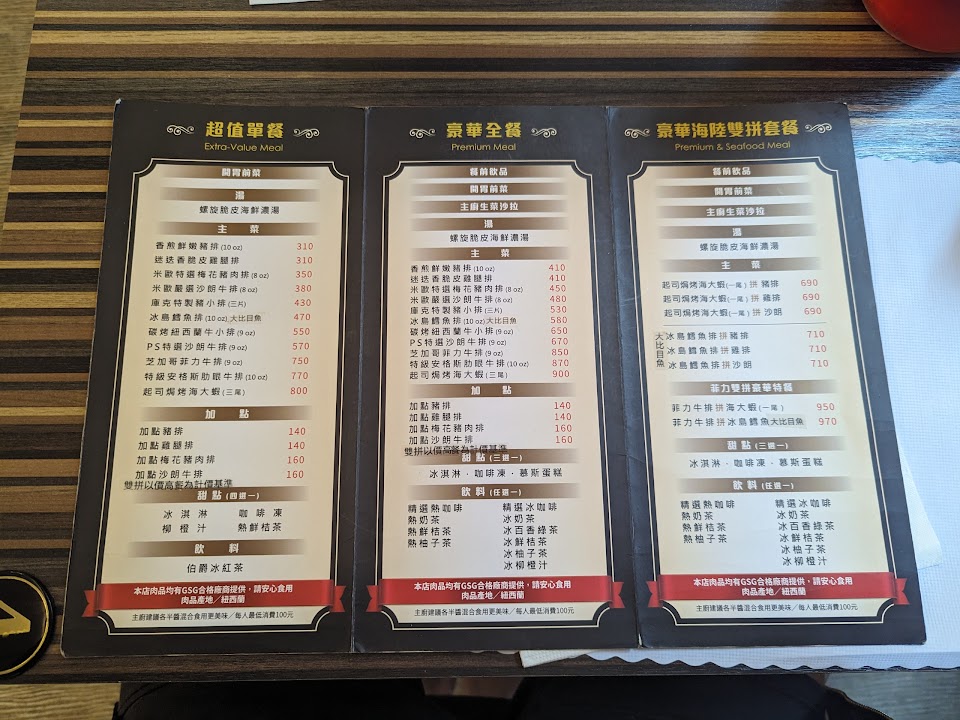 超值單餐
Extra-Value Meal
開胃前菜
湯
螺旋脆皮海鮮濃湯
主菜
香煎鮮嫩豬排(10 oz) 310
迷迭香脆皮雞腿排 310
米歐特選梅花豬肉排(8 oz) 350
米歐嚴選沙朗牛排(8 oz) 380
庫克特製豬小排(三片) 430
冰島鱈魚排(10 oz)大比目魚 470
碳烤紐西蘭牛小排(9 oz) 550
PS特選沙朗牛排(9 oz) 570
芝加哥菲力牛排(9 oz) 750
特級安格斯肋眼牛排(10 oz) 770
起司焗烤海大蝦(三尾) 800
加點
加點豬排 140
加點雞腿排 140
加點梅花豬肉排 160
加點沙朗牛排 160
雙拼以價高餐為計價基準
甜點(四選一)
冰淇淋 咖啡凍
柳橙汁 熱鮮桔茶
飲料
伯爵冰紅茶
本店肉品均有GSG合格廠商提供，請安心食用
肉品產地／紐西蘭
主廚建議各半醬混合食用更美味／每人最低消費100元
豪華全餐
Premium Meal
餐前飲品
開胃前菜
主廚生菜沙拉
湯
螺旋脆皮海鮮濃湯
主菜
香煎鮮嫩豬排(10 oz) 410
迷迭香脆皮雞腿排 410
米歐特選梅花豬肉排(8 oz) 450
米歐嚴選沙朗牛排(8 oz) 480
庫克特製豬小排(三片) 530
冰島鱈魚排(10 oz)大比目魚 580
碳烤紐西蘭牛小排(9 oz) 650
PS特選沙朗牛排(9 oz) 670
芝加哥菲力牛排(9 oz) 850
特級安格斯肋眼牛排(10 oz) 870
起司焗烤海大蝦(三尾) 900
加點
加點豬排 140
加點雞腿排 140
加點梅花豬肉排 160
加點沙朗牛排 160
雙拼以價高餐為計價基準
甜點(三選一)
冰淇淋．咖啡凍．慕斯蛋糕
飲料(任選一)
精選熱咖啡 精選冰咖啡
熱奶茶 冰奶茶
熱鮮桔茶 冰百香綠茶
熱柚子茶 冰鮮桔茶
冰柚子茶
冰柳橙汁
本店肉品均有GSG合格廠商提供，請安心食用
肉品產地／紐西蘭
主廚建議各半醬混合食用更美味／每人最低消費100元
豪華海陸雙拼套餐
Premium & Seafood Meal
餐前飲品
開胃前菜
主廚生菜沙拉
湯
螺旋脆皮海鮮濃湯
主菜
起司焗烤海大蝦(一尾)拼 豬排 690
起司焗烤海大蝦(一尾)拼 雞排 690
起司焗烤海大蝦(一尾)拼 沙朗 690
大比目魚
冰島鱈魚排拼豬排 710
冰島鱈魚排拼雞排 710
冰島鱈魚排拼沙朗 710
菲力雙拼豪華特餐
菲力牛排拼海大蝦(一尾) 950
菲力牛排拼冰島鱈魚大比目魚 970
甜點(三選一)
冰淇淋．咖啡凍．慕斯蛋糕
飲料(任選一)
精選熱咖啡 精選冰咖啡
熱奶茶 冰奶茶
熱鮮桔茶 冰百香綠茶
熱柚子茶 冰鮮桔茶
冰柚子茶
冰柳橙汁
本店肉品均有GSG合格廠商提供，請安心食用
肉品產地／紐西蘭
主廚建議各半醬混合食用更美味／每人最低消費100元